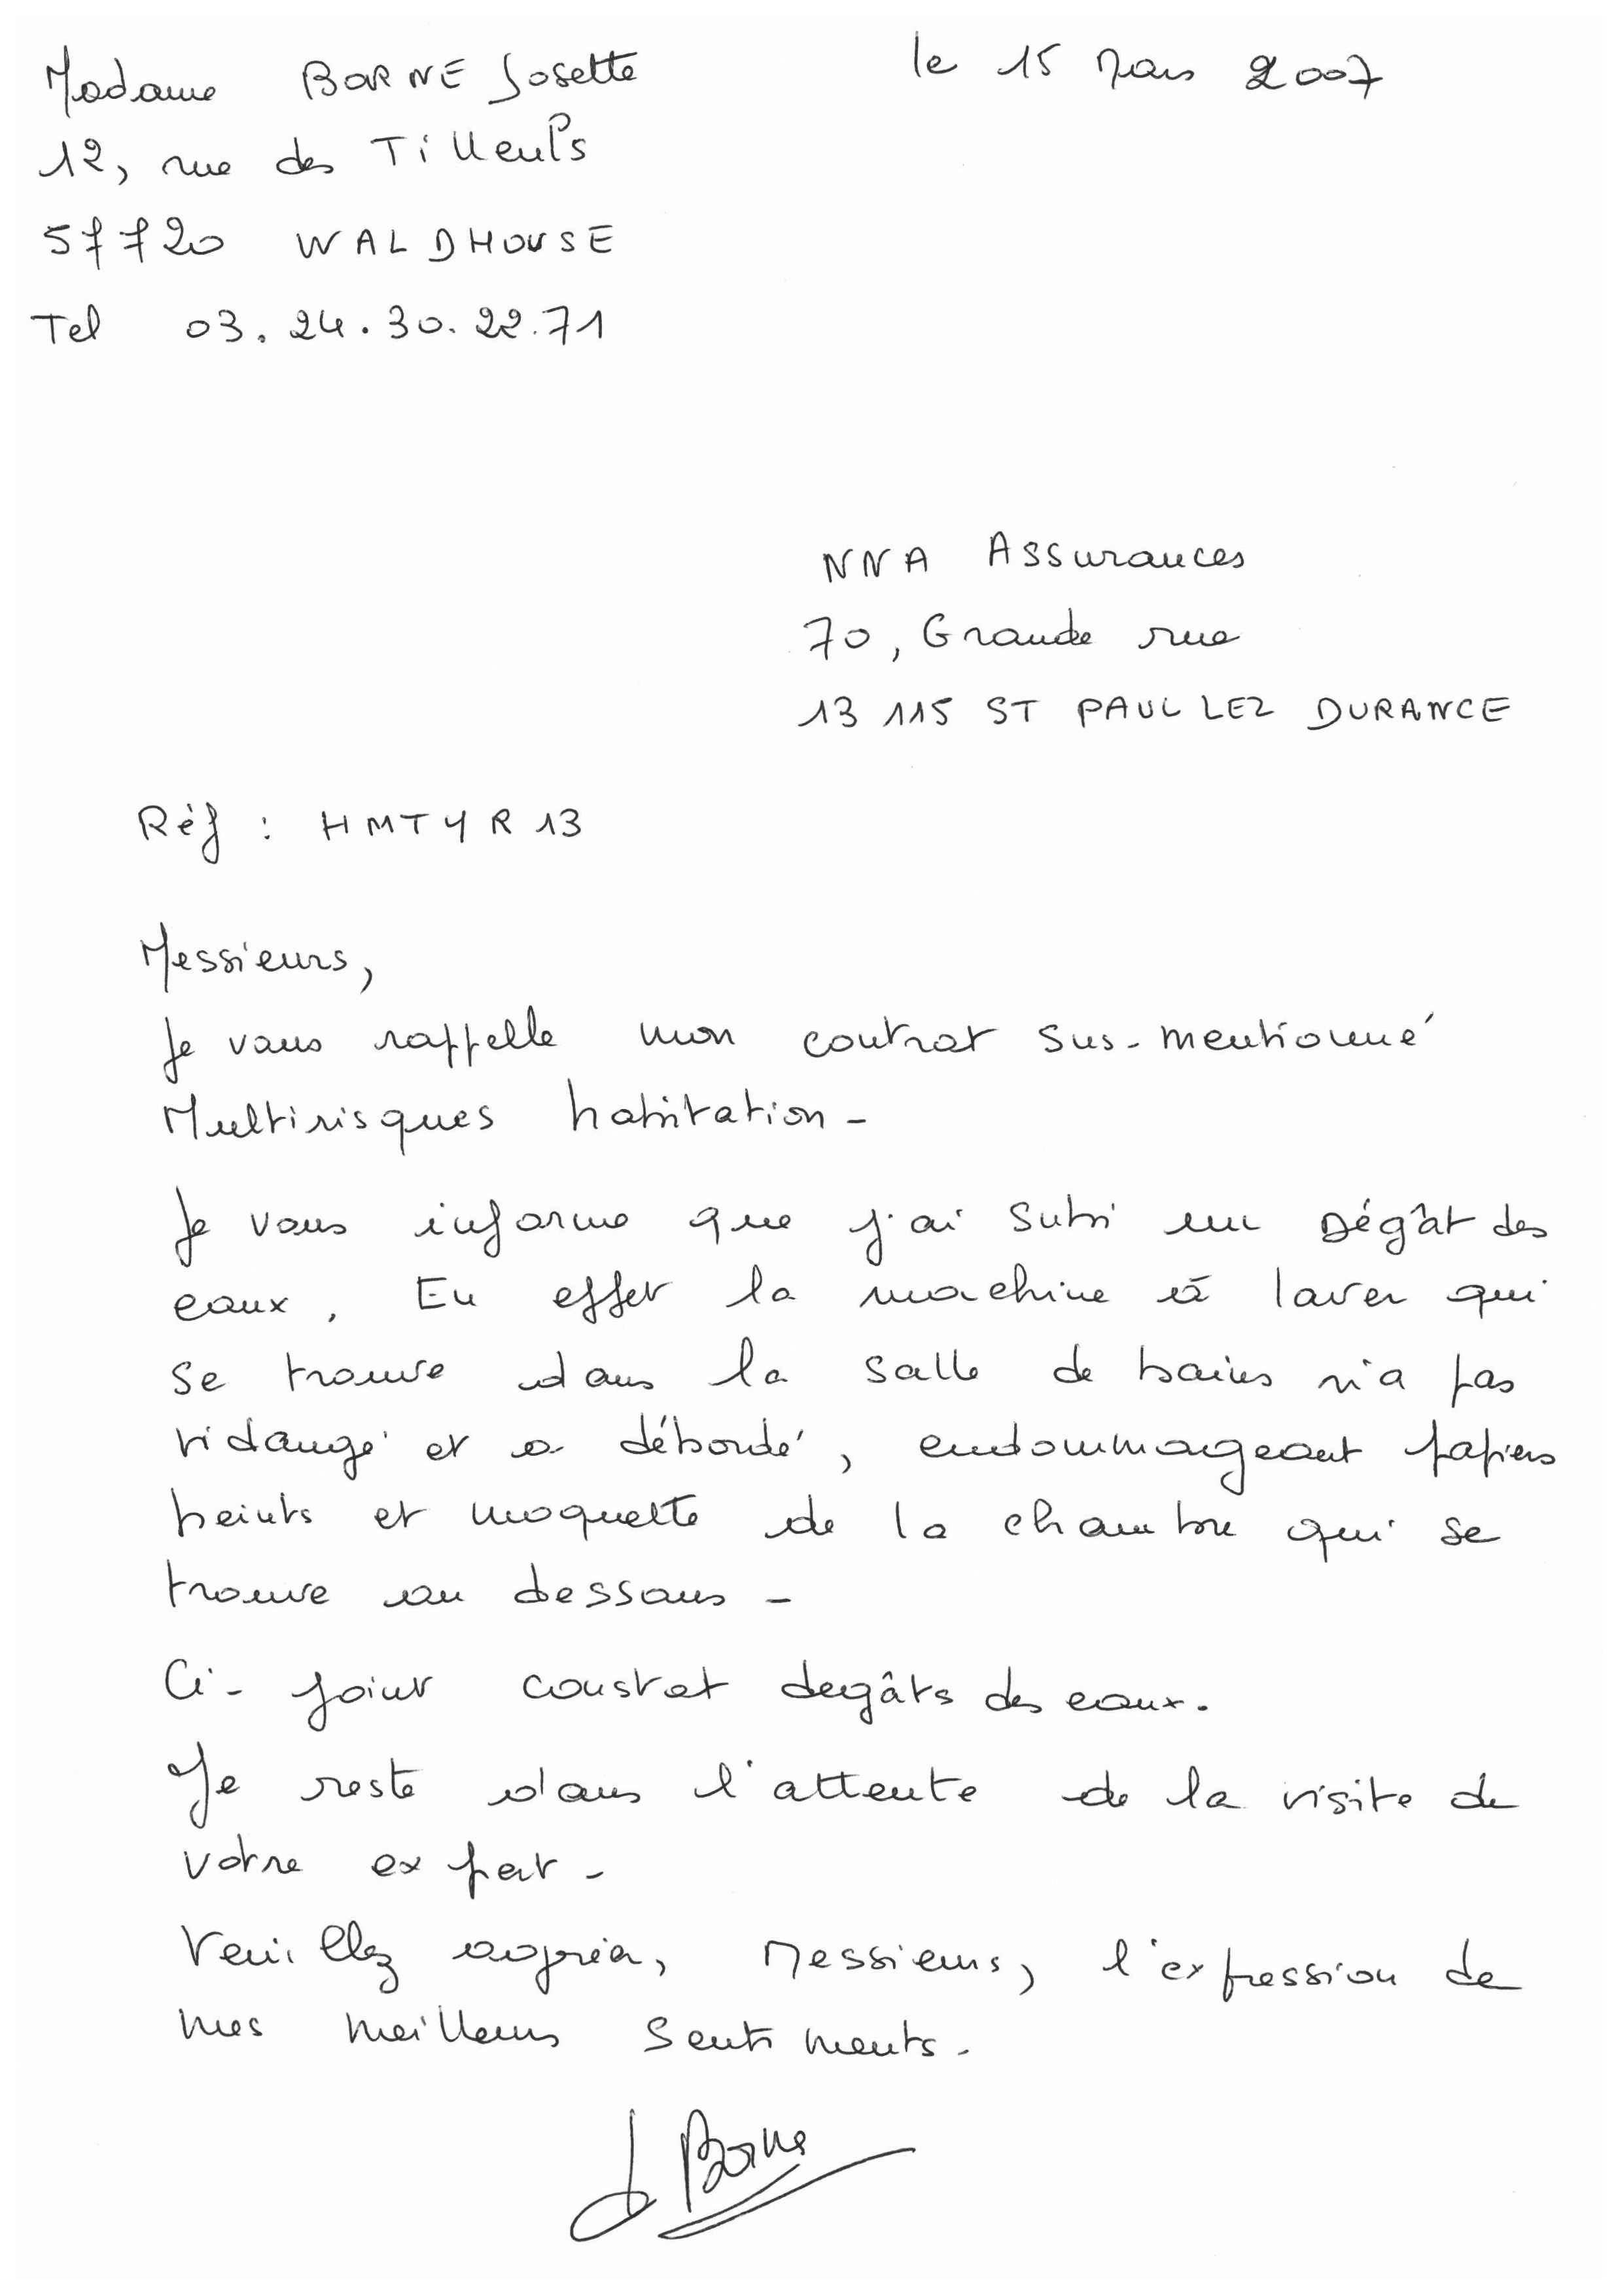 Madame BORNE Josette
le 15 Mars 2007
12, rue des Tilleuls
57720 WALDHOUSE
Tel 03.24.30.22.71
NNA Assurances
70, Grande rue
13 115 ST PAUL LEZ DURANCE
Réf : HMTYR13
Messieurs,
Je vous rappelle mon contrat sus-mentionné
Multirisques habitation -
Je vous informe que j'ai subi un Dégât des
eaux. En effet la machine à laver qui
se trouve dans la salle de bains n'a pas
vidangé et a débordé, endommageant papiers
peints et moquette de la chambre qui se
trouve au dessous -
Ci-joint constat degâts des eaux.
Je reste dans l'attente de la visite de
votre expert -
Veuillez agréer, Messieurs, l'expression de
mes meilleurs sentiments.
J Borne